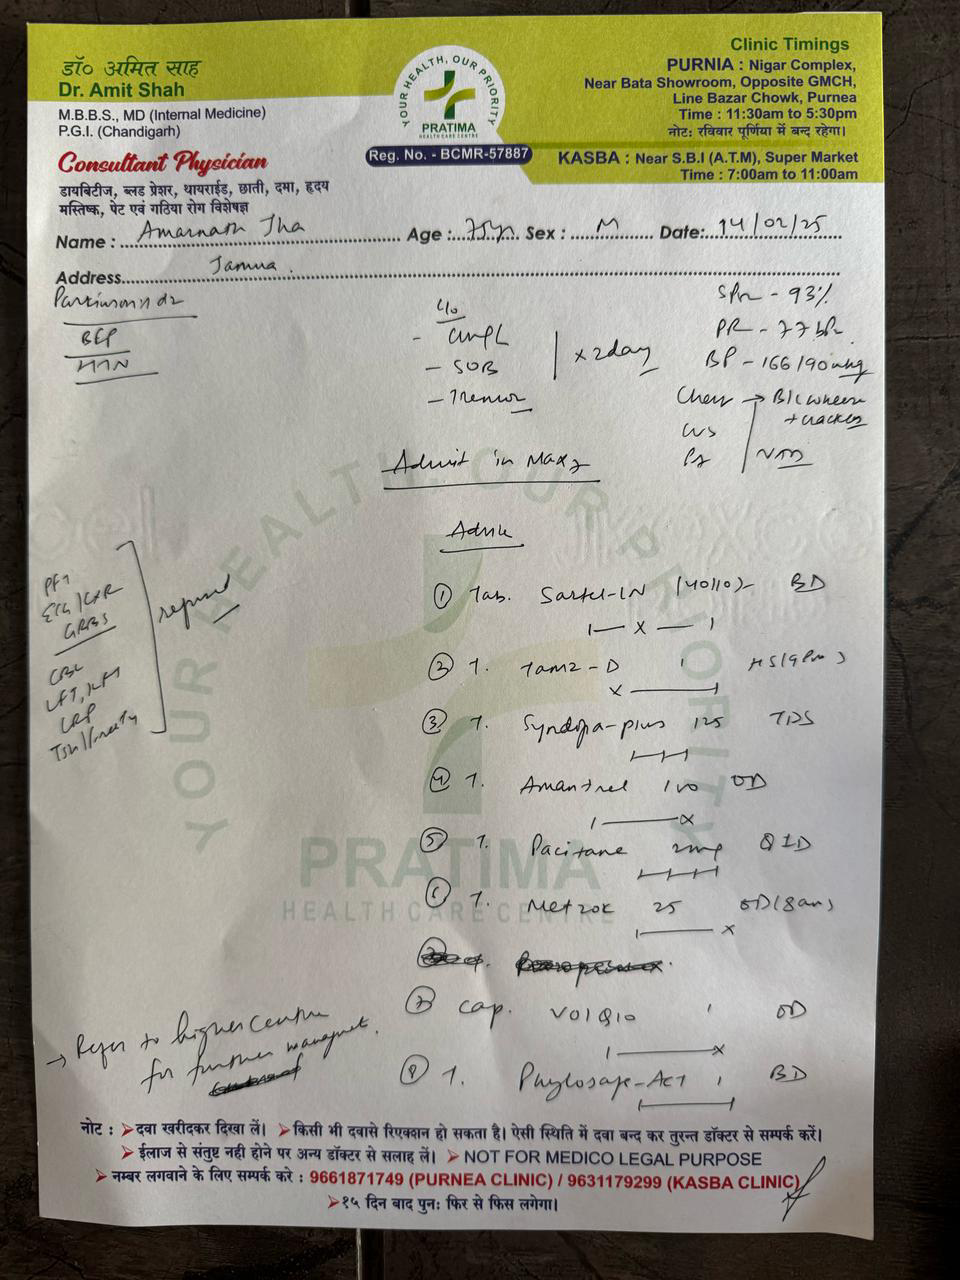 डॉ० अमित साह
Dr. Amit Shah
M.B.B.S., MD (Internal Medicine)
P.G.I. (Chandigarh)
Consultant Physician
डायबिटीज, ब्लड प्रेशर, थायराईड, छाती, दमा, हृदय
मस्तिष्क, पेट एवं गठिया रोग विशेषज्ञ
YOUR HEALTH, OUR PRIORITY
PRATIMA
HEALTH CARE CENTRE
Reg. No. - BCMR-57887
Clinic Timings
PURNIA : Nigar Complex,
Near Bata Showroom, Opposite GMCH,
Line Bazar Chowk, Purnea
Time : 11:30am to 5:30pm
नोट: रविवार पूर्णिया में बन्द रहेगा।
KASBA : Near S.B.I (A.T.M), Super Market
Time : 7:00am to 11:00am
Name : Amarnath Jha Age : 75yr Sex : M Date: 14/02/25
Address Jamua
Parkinson's dz
BEP
HTN
c/o
- SOB
- Tremor
x 2 day
SPO2 - 93%
PR - 77 bpm
BP - 166/90 mmHg
Chest → B/L wheeze
+ crackles
CVS
PA
NAD
Admit in
Advice
PFT
ECG/CXR
GRBS
CBC
LFT, KFT
CRP
refused
① Tab. Sartel-LN (40/10) BD
1 — X — 1
② T. Tamz-D 1 HS (9pm)
X
③ T. Syndopa-plus 125 TDS
④ T. Amantrel 100 OD
X
⑤ T. Pacitane 2mg QID
⑥ T. Metzok 25 OD (8am)
X
⑦ Cap. Vol Q10 1 OD
X
⑧ T. Phylosafe-ACT 1 BD
→ Refer to higher centre
for further managmet.
YOUR HEALTH, OUR PRIORITY
PRATIMA
HEALTH CARE CENTRE
नोट : ➤दवा खरीदकर दिखा लें। ➤किसी भी दवासे रिएक्शन हो सकता है। ऐसी स्थिति में दवा बन्द कर तुरन्त डॉक्टर से सम्पर्क करें।
➤ईलाज से संतुष्ट नही होने पर अन्य डॉक्टर से सलाह लें। ➤ NOT FOR MEDICO LEGAL PURPOSE
➤नम्बर लगवाने के लिए सम्पर्क करे : 9661871749 (PURNEA CLINIC) / 9631179299 (KASBA CLINIC)
➤१५ दिन बाद पुनः फिर से फिस लगेगा।